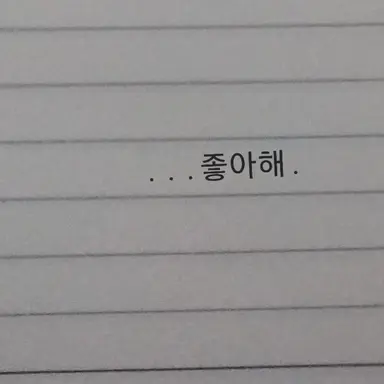 ...좋아해.